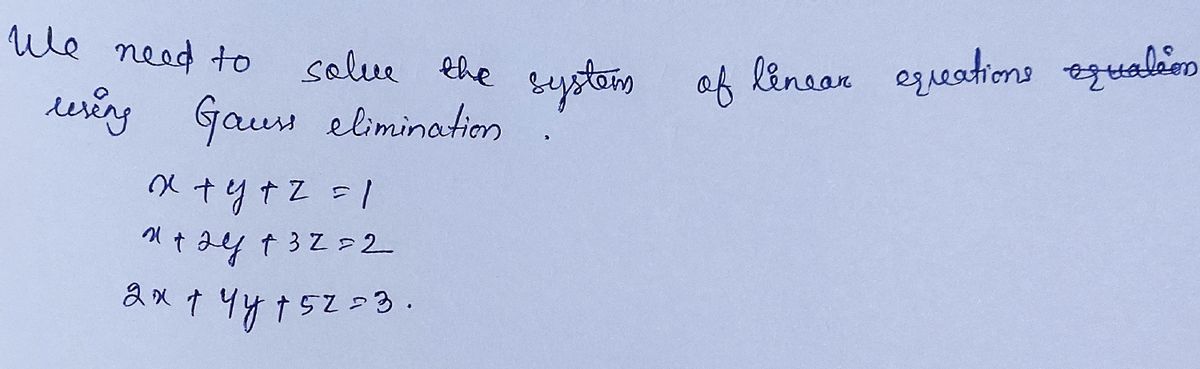 We need to solve the system of linear equations equation
using Gauss elimination .
x + y + z = 1
x + 2y + 3z = 2
2x + 4y + 5z = 3 .